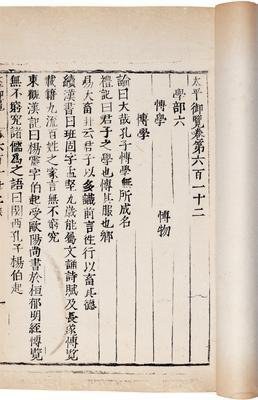 太平御覽卷第六百一十二
學部六
博學 博物
博學
論曰大哉孔子博學無所成名
禮記曰君子之學也博其服也鄉
易大畜卦云君子以多識前言往行以畜其德
續漢書曰班固字孟堅九歲能屬文誦詩賦及長遂博覽
載籍九流百姓之家言無不窮究
東觀漢記曰楊震字伯起受歐陽尚書於桓郁明經博覽
無不窮究諸儒為之語曰關西孔子楊伯起